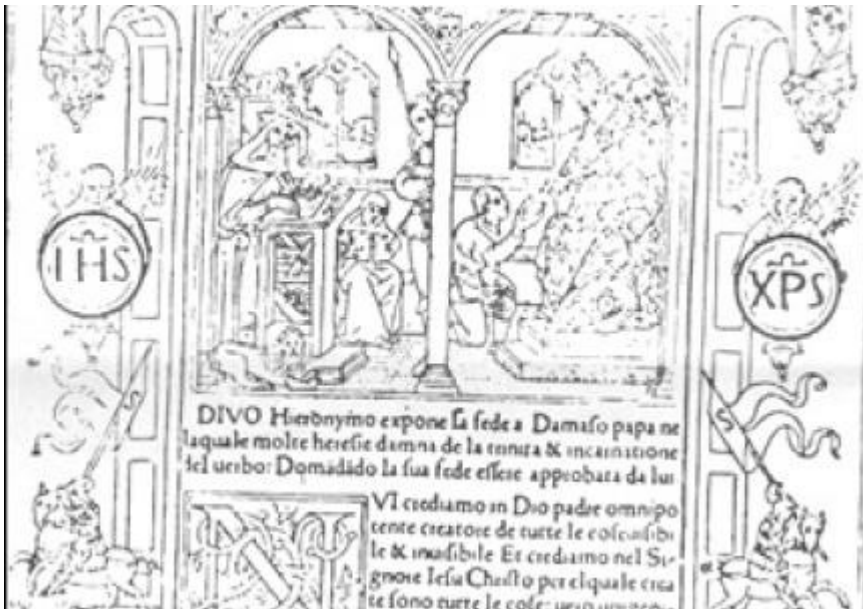 IHS
XPS
DIVO Hieronymo expone la fede a Damaso papa ne
laquale molte heresie damna de la trinita & incarnatione
del uerbo: Domãdãdo la sua fede essere approbata da lui
VI crediamo in Dio padre omnipo
tente creatore de tutte le cose uisibi
le & inuisibile Et crediamo nel Si-
gnore Iesu Christo per elquale crea
te sono tutte le cose: uero
S
S